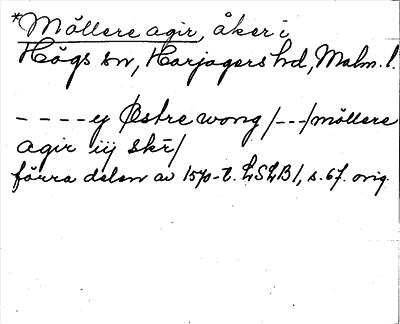 *Möllere agir, åker i
Högs sn, Harjagers hd, Malm. l.
- - - - ey Østre wong /---/ möllere
agir iij skr/
förra delen av 1570-t. LSLB1, s. 67. orig.